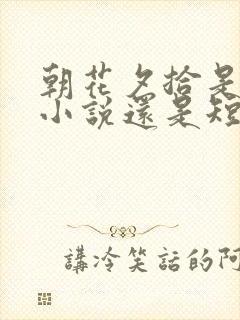 朝花夕拾是
小說還是短
講冷笑話的阿